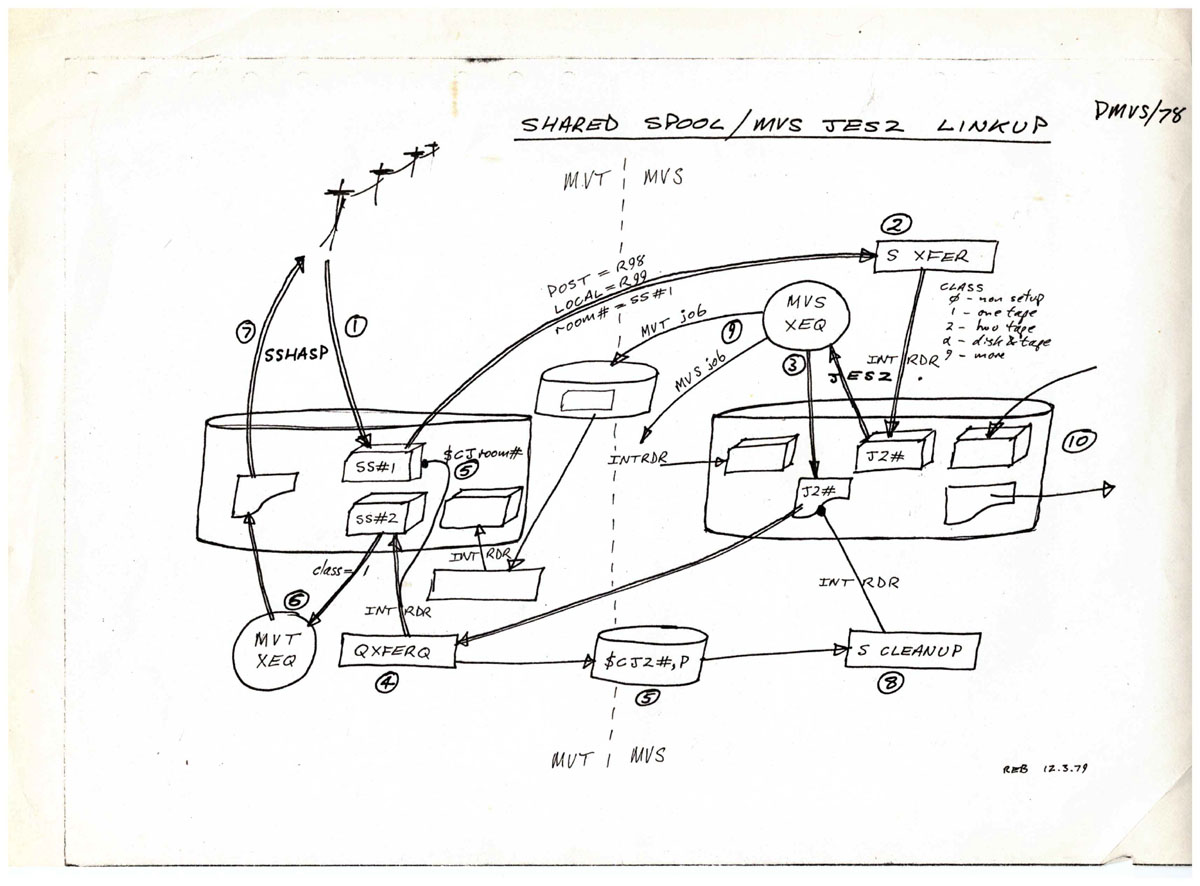 DMVS/78
SHARED SPOOL/MVS JES2 LINKUP
MVT | MVS
2
S XFER
POST = R98
LOCAL = R99
room# = SS#1
CLASS
Ø - non setup
1 - one tape
2 - two tape
d - disk & tape
9 - more
MVS
XEQ
9
MVT job
MVS job
7
1
SSHASP
3
INT RDR
JES2
SS#1
$CJ room#
5
INTRDR
J2#
10
J2#
SS#2
INT RDR
class = 1
INT RDR
INT RDR
6
MVT
XEQ
QXFERQ
4
$CJ2#,P
5
S CLEANUP
8
MVT | MVS
REB 12.3.79